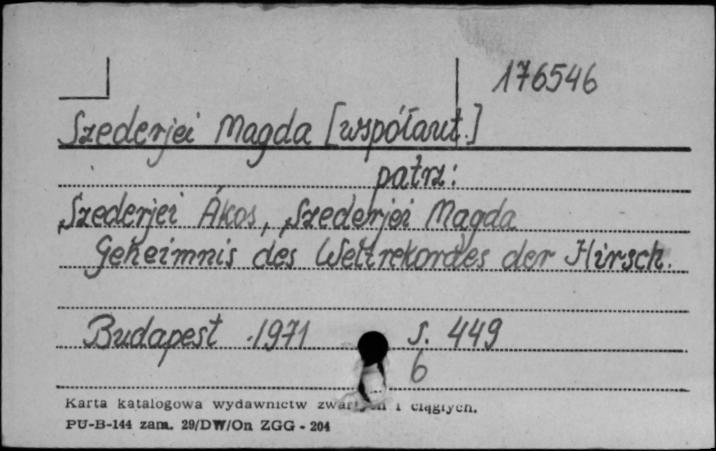 176546
Szederjei Magda [współaut.]
patrz:
Szederjei Ákos, Szederjei Magda
Geheimnis des Weltrekordes der Hirsch.
Budapest 1971 s. 449
6
Karta katalogowa wydawnictw zwartych i ciągłych.
PU-B-144 zam. 29/DW/On ZGG - 204